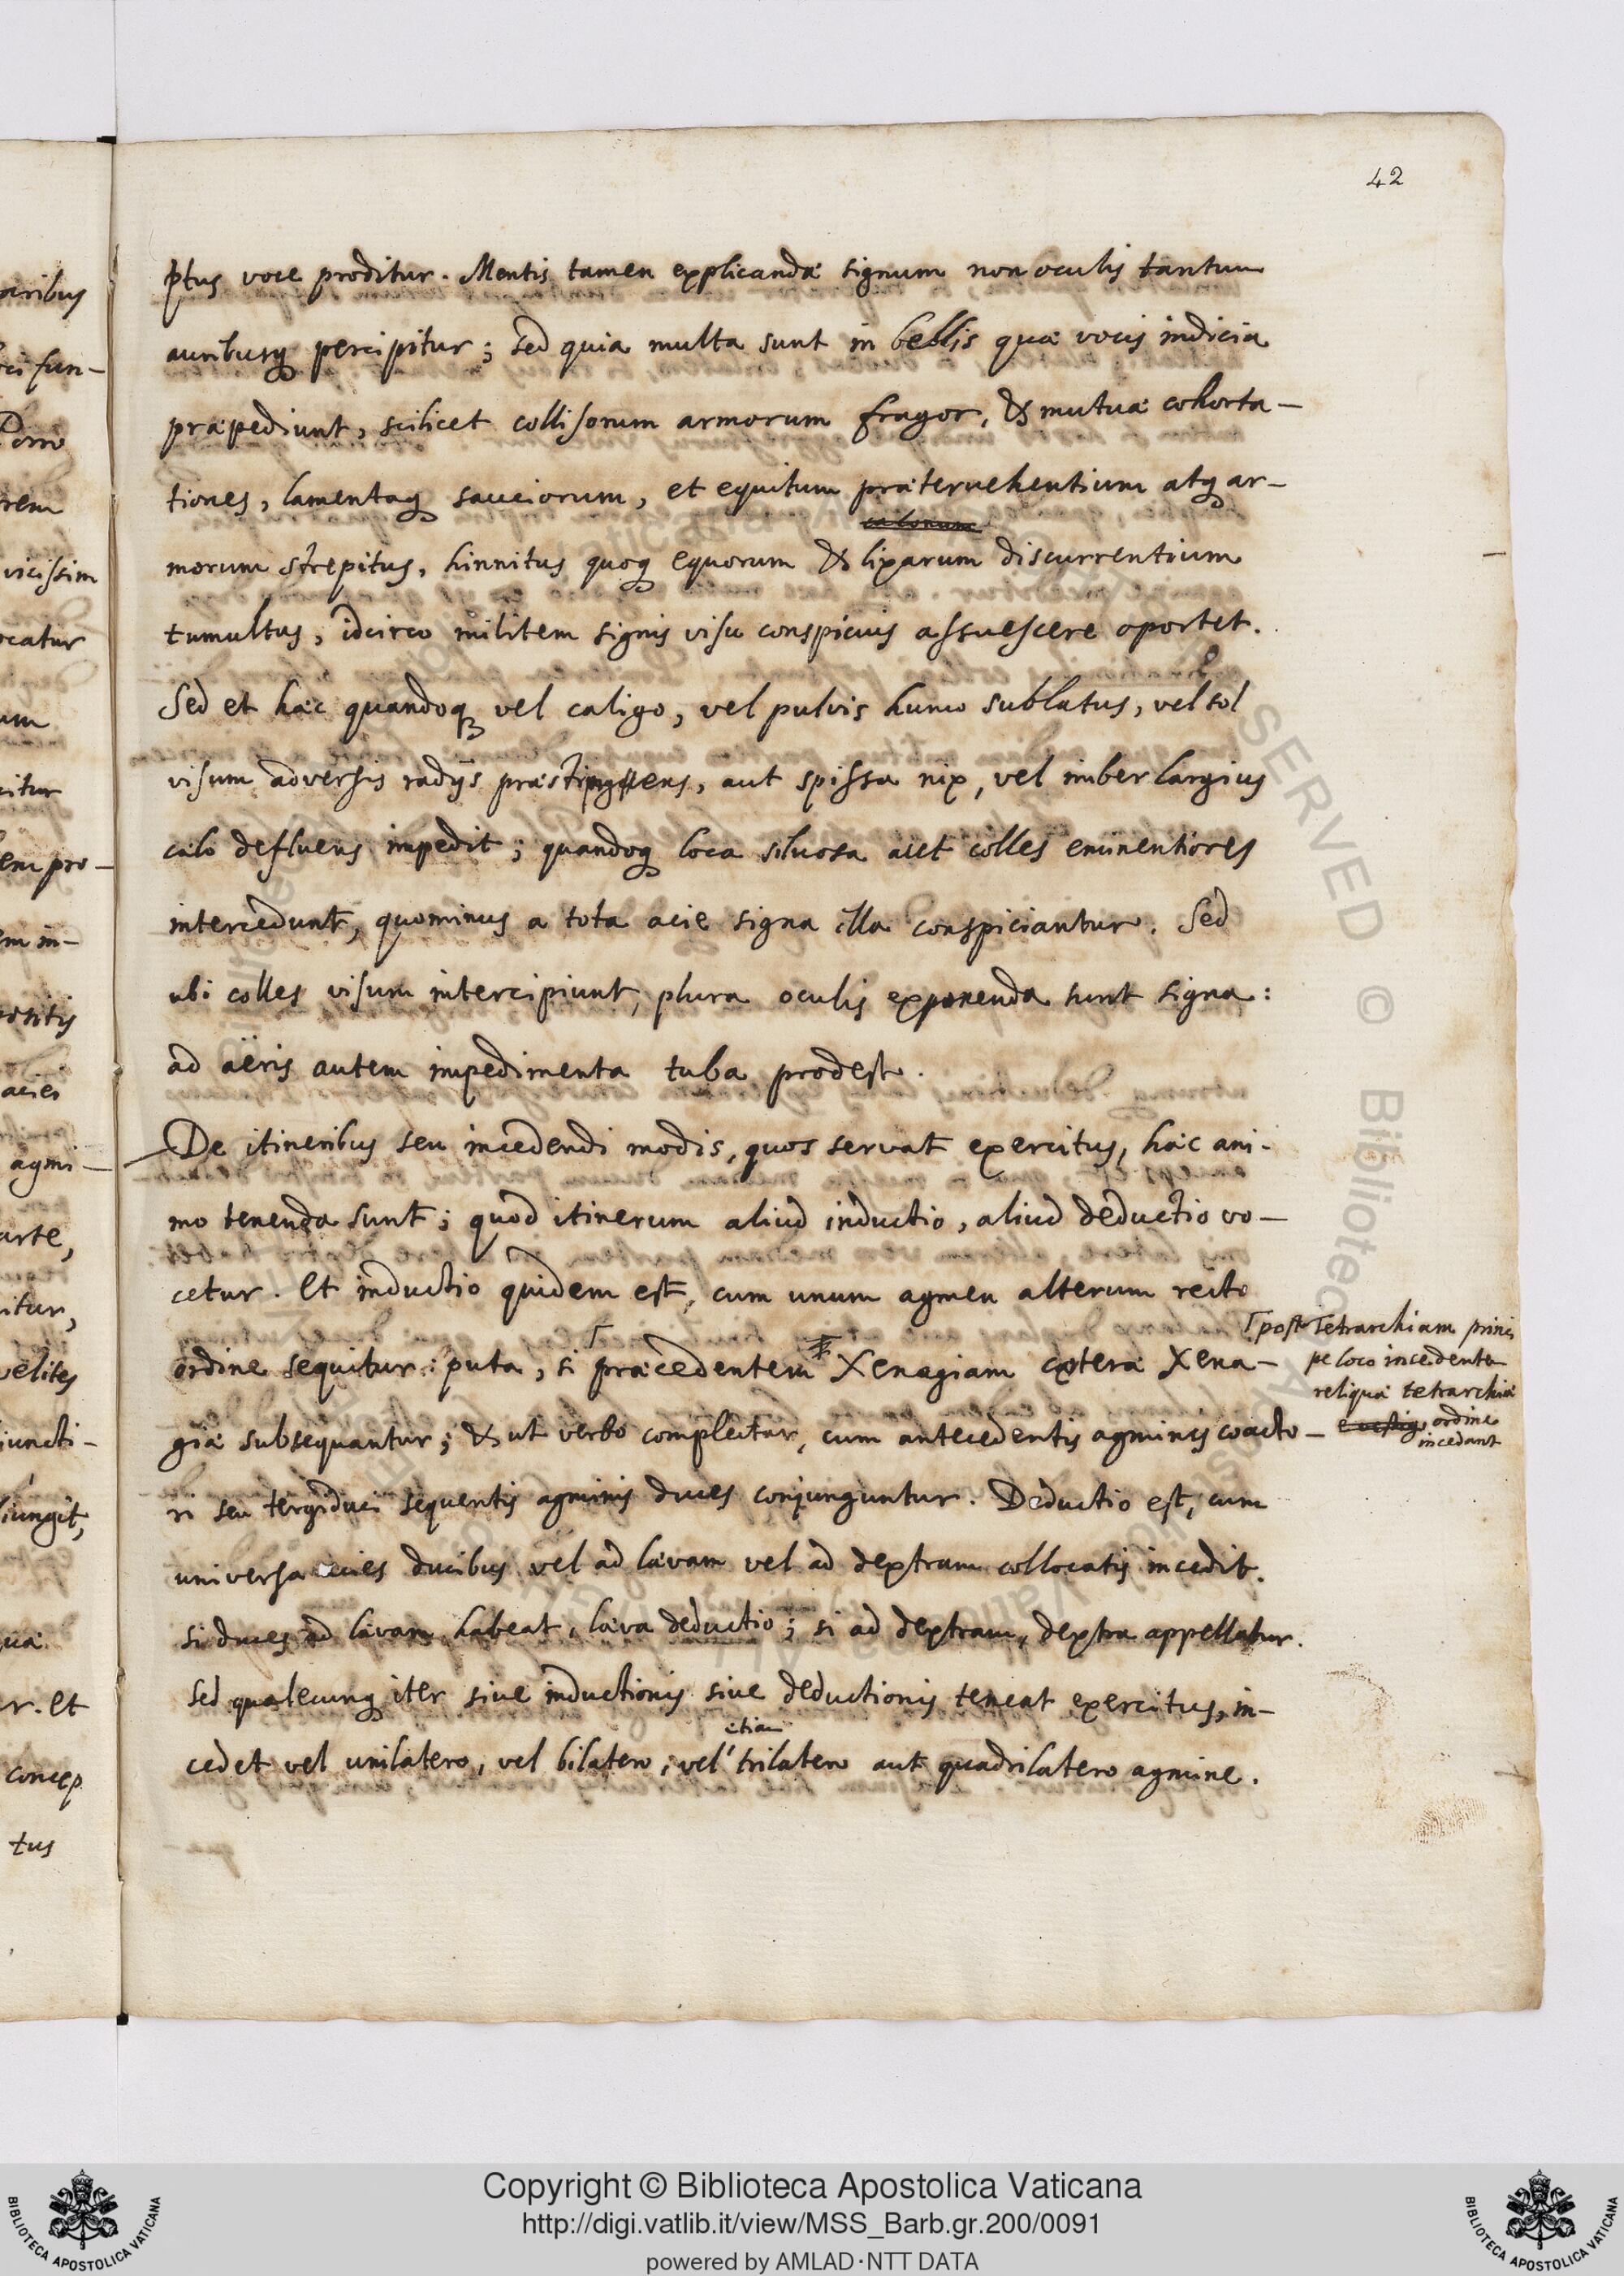 42
ptus voce proditur. Mentis tamen explicandæ signum non oculis tantum
auribusq percipitur; sed quia multa sunt in bellis quæ vocis indicia
præpediunt, scilicet collisorum armorum fragor, & mutuæ cohorta-
tiones, lamentaq sauciorum, et equitum prætervehentium atq ar-
calonum
morum strepitus, hinnitus quoq equorum & lixarum discurrentium
tumultus, idcirco militem signis visu conspicuis assuescere oportet.
Sed et hæc quandoq vel caligo, vel pulvis humo sublatus, vel sol
visum adversis radijs præstringens, aut spissa nix, vel imber largius
cælo defluens impedit; quandoq loca silvosa aut colles eminentiores
intercedunt, quominus a tota acie signa illa conspiciantur. Sed
ubi colles visum intercipiunt, plura oculis exponenda sunt signa:
ad aëris autem impedimenta tuba prodest.
De itineribus seu incedendi modis, quos servat exercitus, hæc ani-
mo tenenda sunt; quod itinerum aliud inductio, aliud deductio vo-
cetur. Et inductio quidem est, cum unum agmen alterum recto
ordine sequitur: puta, si præcedentem Xenagiam cæteræ Xena-
giæ subsequantur; & ut verbo complectar, cum antecedentis agminis coacto-
ri seu tergiduci sequentis agminis duces conjunguntur. Deductio est, cum
universa acies ducibus vel ad lævam vel ad dextram collocatis incedit.
si duces ad lævam habeat, læva deductio; si ad dextram, dextra appellatur.
Sed qualecunq iter sive inductionis sive deductionis teneat exercitus, in-
etiam
cedet vel unilatero, vel bilatero; vel trilatero aut quadrilatero agmine.
post Tetrarchiam princi
pe loco incedentem
reliquæ tetrarchiæ
ordine
incedant
aribus
ci fun-
Porro
rem
vicissim
ocatur
um
citur
em pro-
em in-
positis
aciei
agmi-
arte,
itur,
velites
iuncti-
iungit,
uæ
r. Et
concep
tus
Copyright © Biblioteca Apostolica Vaticana
http://digi.vatlib.it/view/MSS_Barb.gr.200/0091
powered by AMLAD·NTT DATA
BIBLIOTECA APOSTOLICA VATICANA
BIBLIOTECA APOSTOLICA VATICANA